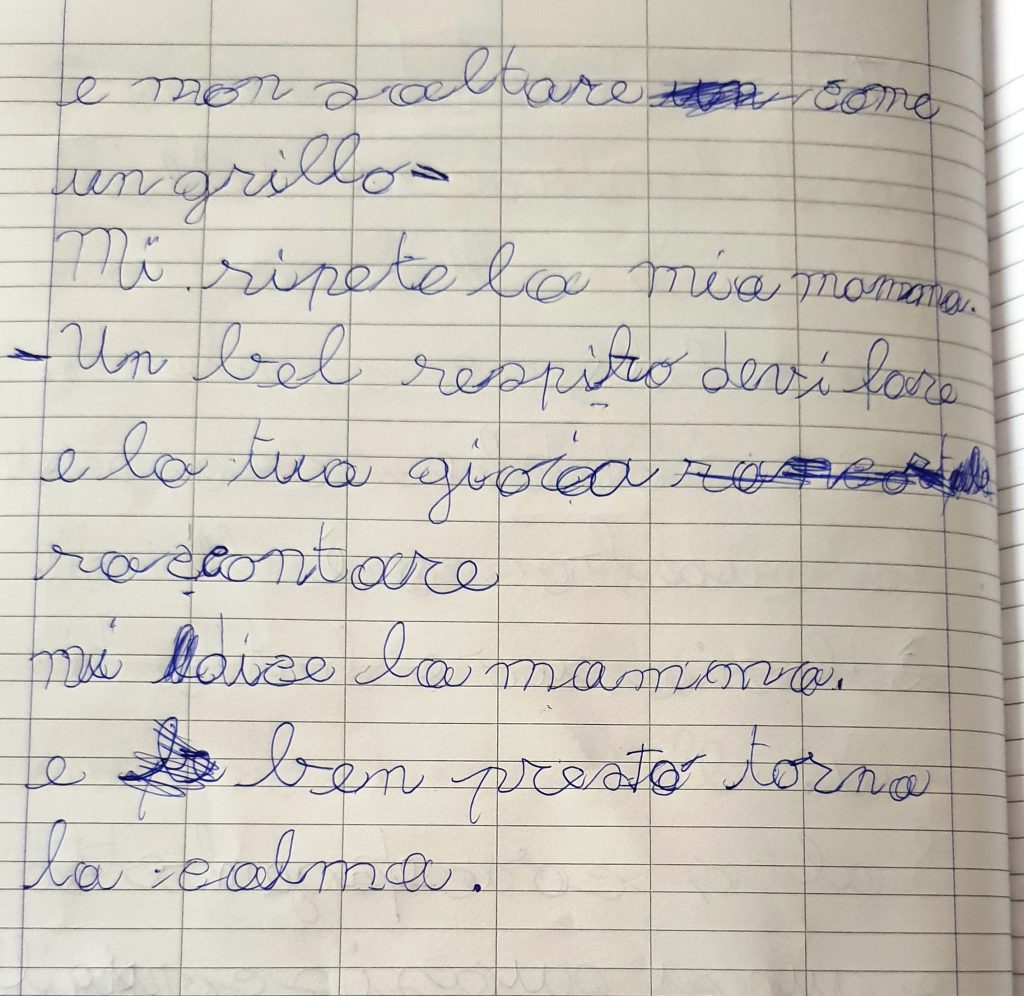 e non saltare come
un grillo-
Mi ripete la mia mamma.
- Un bel respiro devi fare
e la tua gioia
raccontare
mi dice la mamma.
e ben presto torna
la calma.